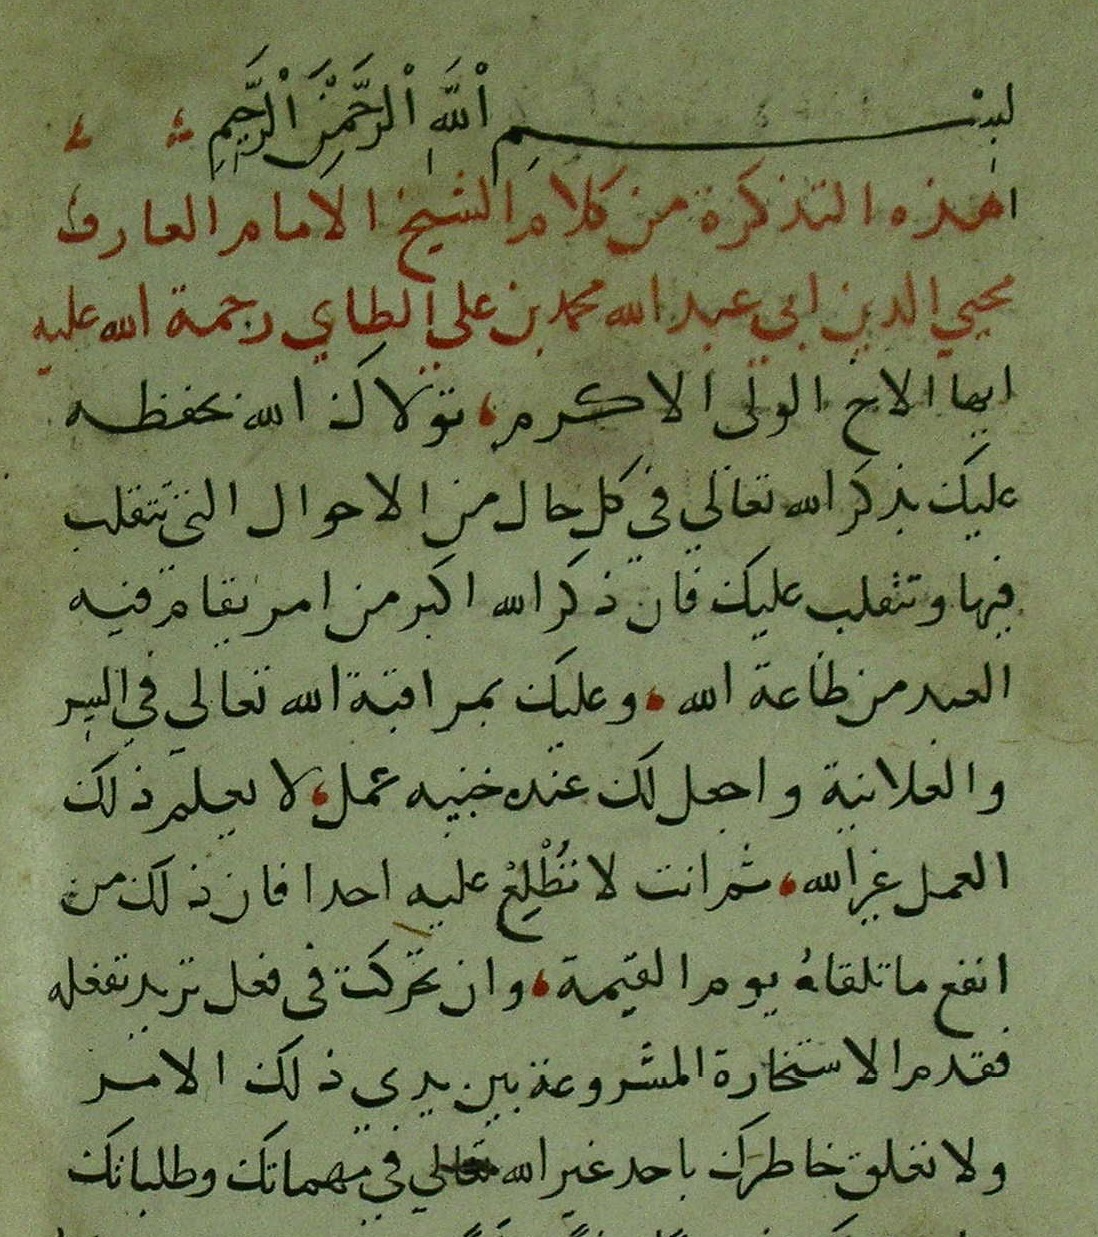 بِسْمِ اْللَّهِ اْلرَّحْمَنِ اْلرَّحِيمِ
هذه التذكرة من كلام الشيخ الامام العارف
محيي الدين ابي عبد الله محمد بن علي الطاي رحمة الله عليه
ايها الاخ الولى الاكرم، تولاك الله بحفظه
عليك بذكر الله تعالي في كل حال من الاحوال التي تتقلب
فيها وتتقلب عليك فان ذكر الله اكبر من امر يقام فيه
العبد من طاعة الله، وعليك بمراقبة الله تعالي في السر
والعلانية واجعل لك عنده خبيه عمل، لا يعلم ذلك
العمل غير الله، ثم انت لا تُطْلِعْ عليه احدا فان ذلك من
انفع ما تلقاهُ يوم القيمة، وان تحركت فى فعل تريد تفعله
فقدم الاستخارة المشروعة بين يدي ذلك الامر
ولا تعلق خاطرك باحد غير الله تعالي في مهماتك وطلباتك